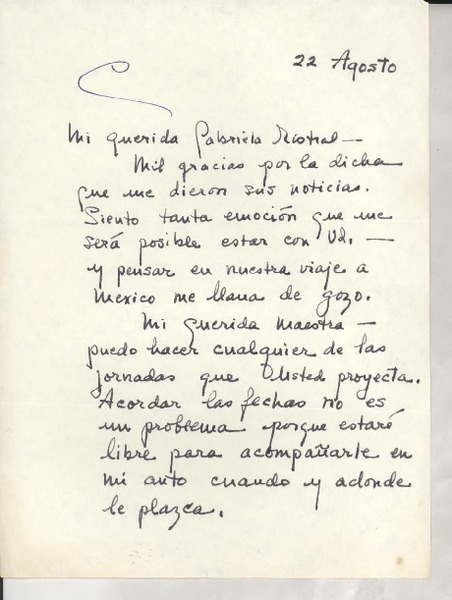 22 Agosto
Mi querida Gabriela Mistral —
Mil gracias por la dicha
que me dieron sus noticias.
Siento tanta emoción que me
será posible estar con Ud. —
y pensar en nuestra viaje a
Mexico me llana de gozo.
Mi querida Maestra —
puedo hacer cualquier de las
jornadas que Usted proyecta.
Acordar las fechas no es
un problema porque estaré
libre para acompañarte en
mi auto cuando y adonde
le plazca.